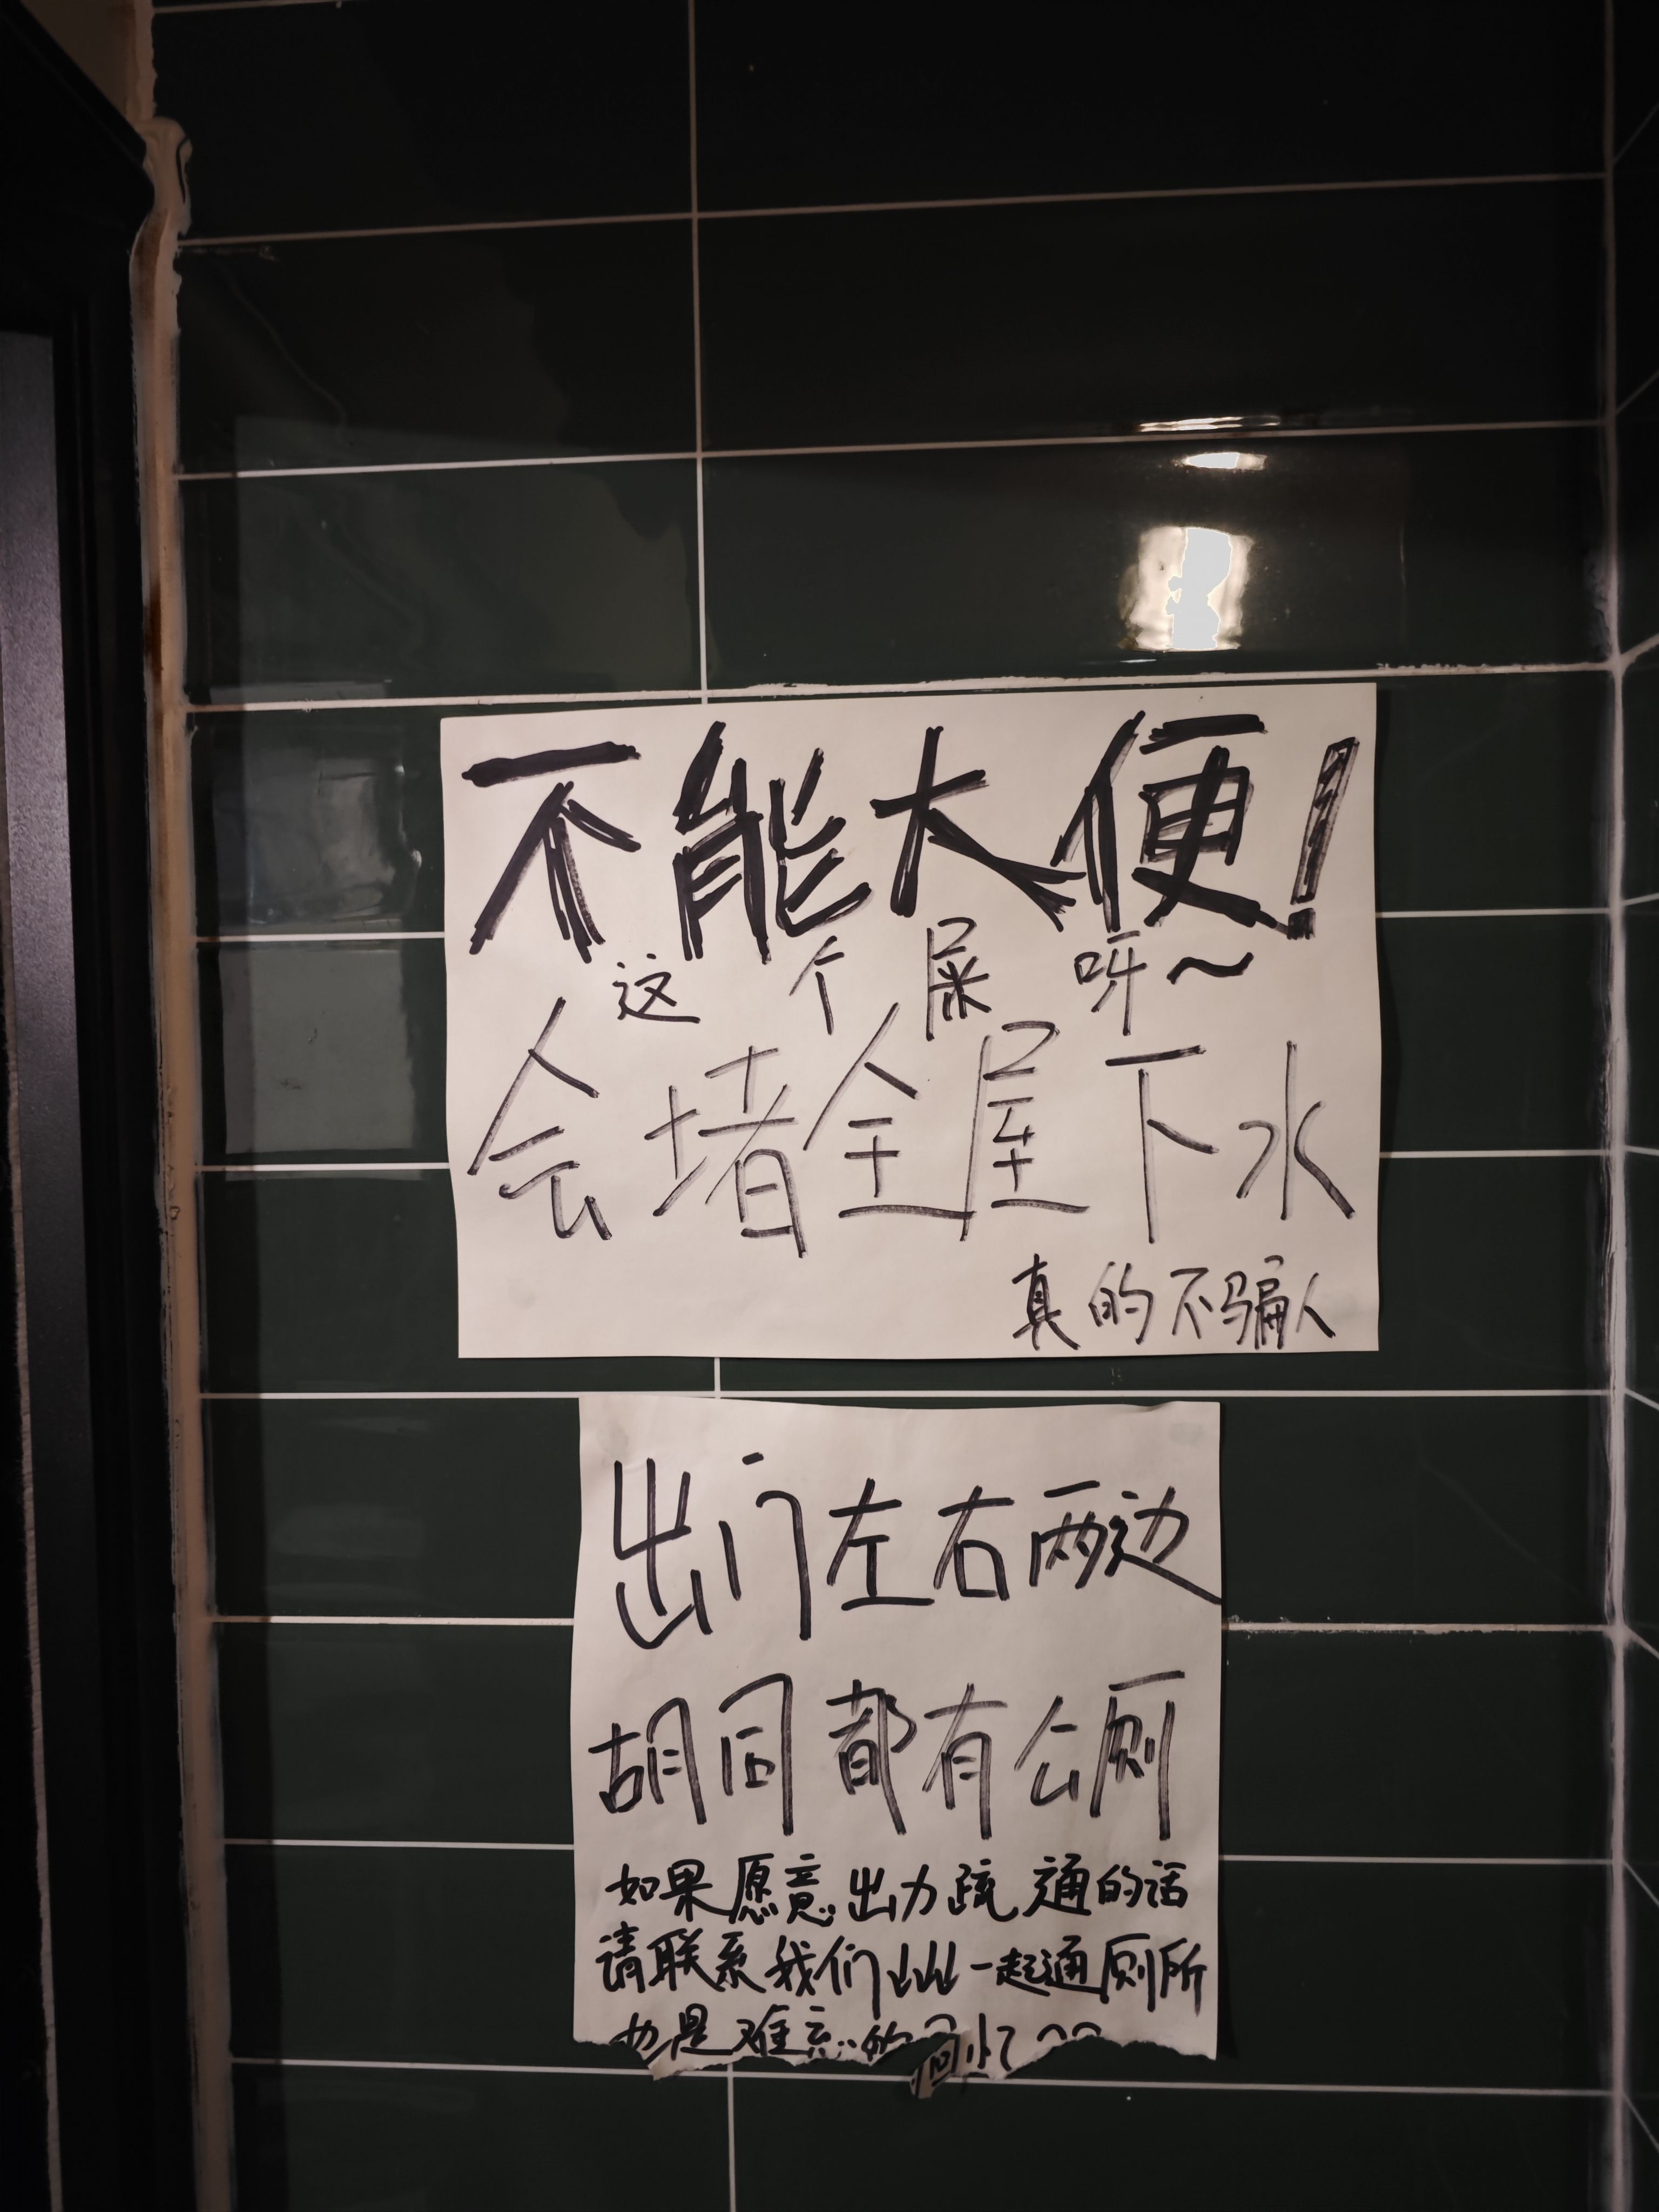 不能大便!
这个屎呀~
会堵全屋下水
真的不骗人
出门左右两边
胡同都有公厕
如果愿意出力疏通的话
请联系我们↓↓↓一起通厕所
也是难忘的回忆